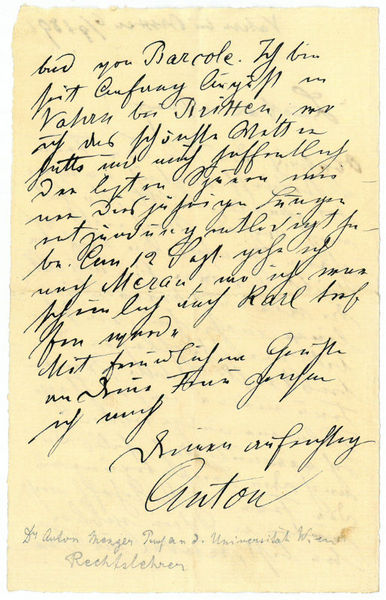 bad von Barcole. Ich bin
seit Anfang August in
Vahrn bei Brixen, wo
ich das schönste Wetter
hatte und mich hoffentlich
der letzten Spuren mei
ner diesjährigen Lungen
entzündung entledigt ha-
be. Am 12 Sept. gehe ich
nach Meran wo ich wahr
scheinlich auch Karl tref
fen werde
Mit freundlichen Grüßen
an Deine Frau zeichne
ich mich
Deinen aufrichtig
Anton
Dr Anton Menger Prof an d. Universität Wien
Rechtslehrer